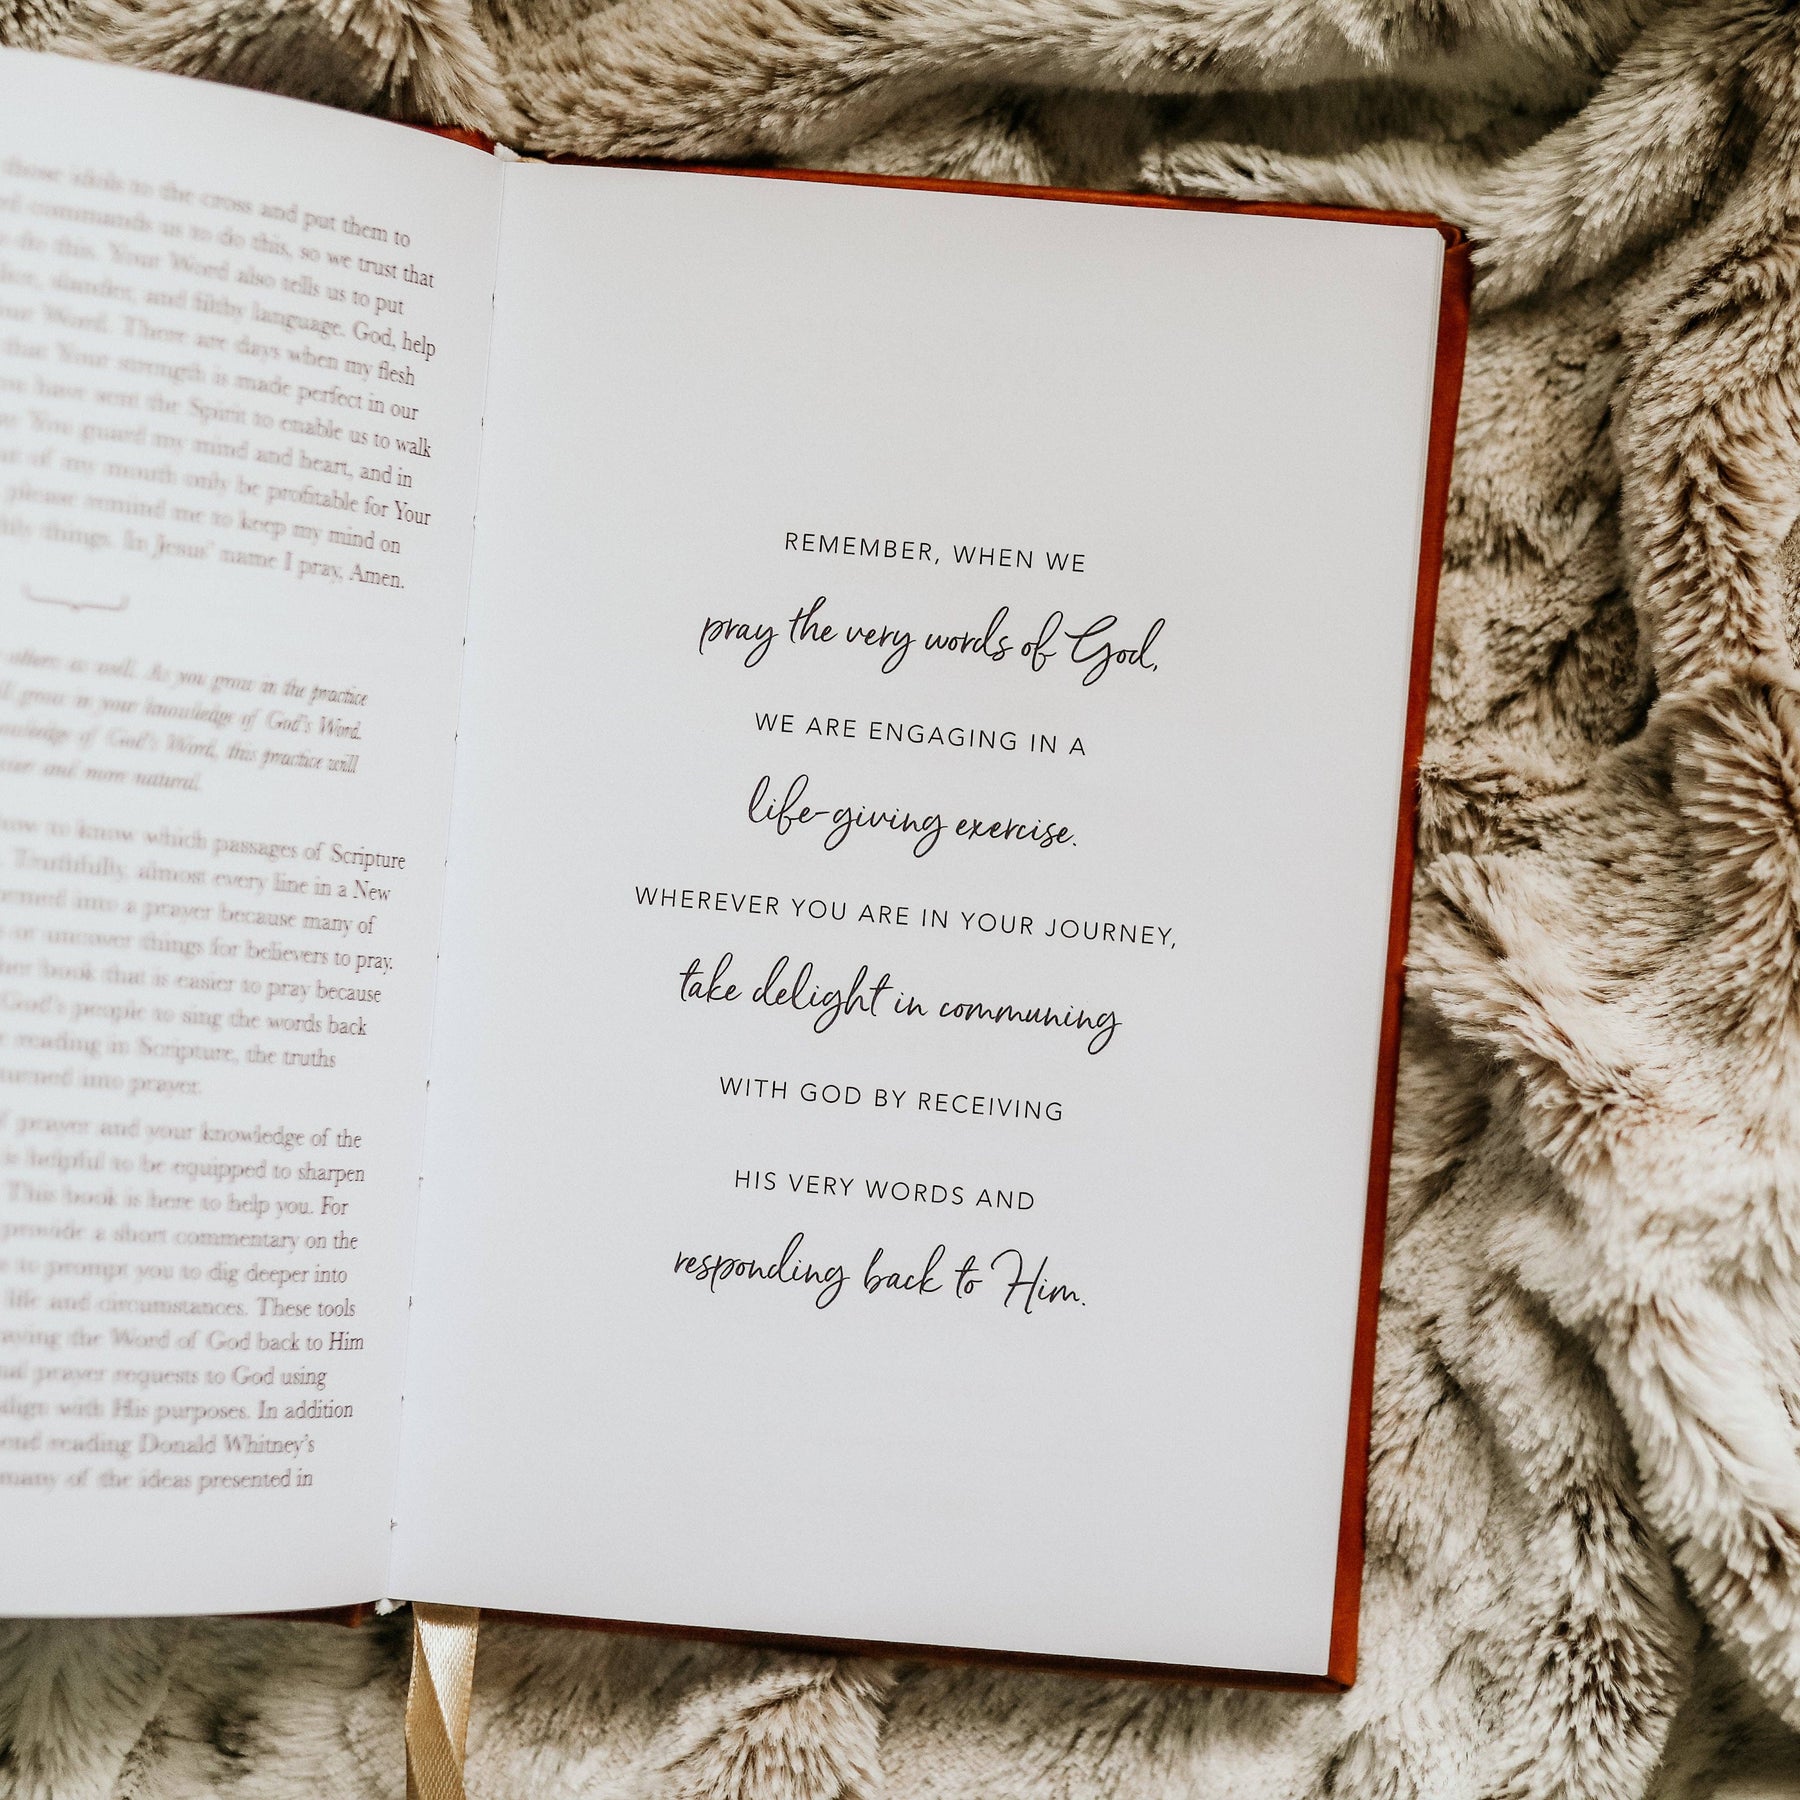 those idols to the cross and put them to
commands us to do this, so we trust that
do this. Your Word also tells us to put
slander, and filthy language. God, help
your Word. There are days when my flesh
that Your strength is made perfect in our
have sent the Spirit to enable us to walk
You guard my mind and heart, and in
of my mouth only be profitable for Your
please remind me to keep my mind on
things. In Jesus' name I pray, Amen.
others as well. As you grow in the practice
grow in your knowledge of God's Word.
of God's Word, this practice will
and more natural.
to know which passages of Scripture
Truthfully, almost every line in a New
into a prayer because many of
or uncover things for believers to pray.
book that is easier to pray because
God's people to sing the words back
reading in Scripture, the truths
turned into prayer.
prayer and your knowledge of the
is helpful to be equipped to sharpen
This book is here to help you. For
provide a short commentary on the
to prompt you to dig deeper into
life and circumstances. These tools
the Word of God back to Him
prayer requests to God using
align with His purposes. In addition
reading Donald Whitney's
many of the ideas presented in
REMEMBER, WHEN WE
pray the very words of God,
WE ARE ENGAGING IN A
life-giving exercise.
WHEREVER YOU ARE IN YOUR JOURNEY,
take delight in communing
WITH GOD BY RECEIVING
HIS VERY WORDS AND
responding back to Him.